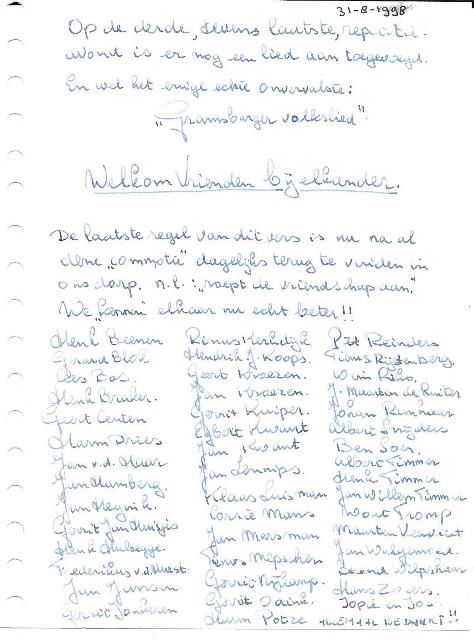 31-8-1998
Op de derde, tevens laatste, repetitie-
avond is er nog een lied aan toegevoegd.
En wel het enige echte onvervalste:
„Gramsbarger volkslied".
Welkom Vrienden bij elkander.
De laatste regel van dit vers is nu na al
deze „commotie" dagelijks terug te vinden in
ons dorp. n.l: „roept de vriendschap aan."
We „kennen" elkaar nu echt beter!!
Henk Beenen Rinus Kerkdijk Piet Reinders
Gerard Blok Hendrik J. Koops. Tinus
Cees Bos. Geert Kroezen. Wim
Henk Bruker. Jan Kroezen. J. Maarten de Ruiter
Geert Centen Gerrit Kuiper. Johan
Harm Dries Egbert Kwant Albert Snijders
Jan v.d. Haar Jan Kwant Ben Soer.
Jan Hamberg. Jan Lennips. Albert Timmer
Jan Heynik. Klaas Luisman Henk Timmer
Gerrit Jan Lorrie Mans Jan Willem Timmer
Henk Jan Marsman Wout Tromp
Frederikus v.d. Hulst. Teunis Mepschen Maarten
Jan Jansen Gerrit Nijkamp. Jan
Gerrit Jonkeren Gerrit Harm Potze
Hans Zweers.
Jopie en Jou.
ALLEMAAL BEDANKT!!